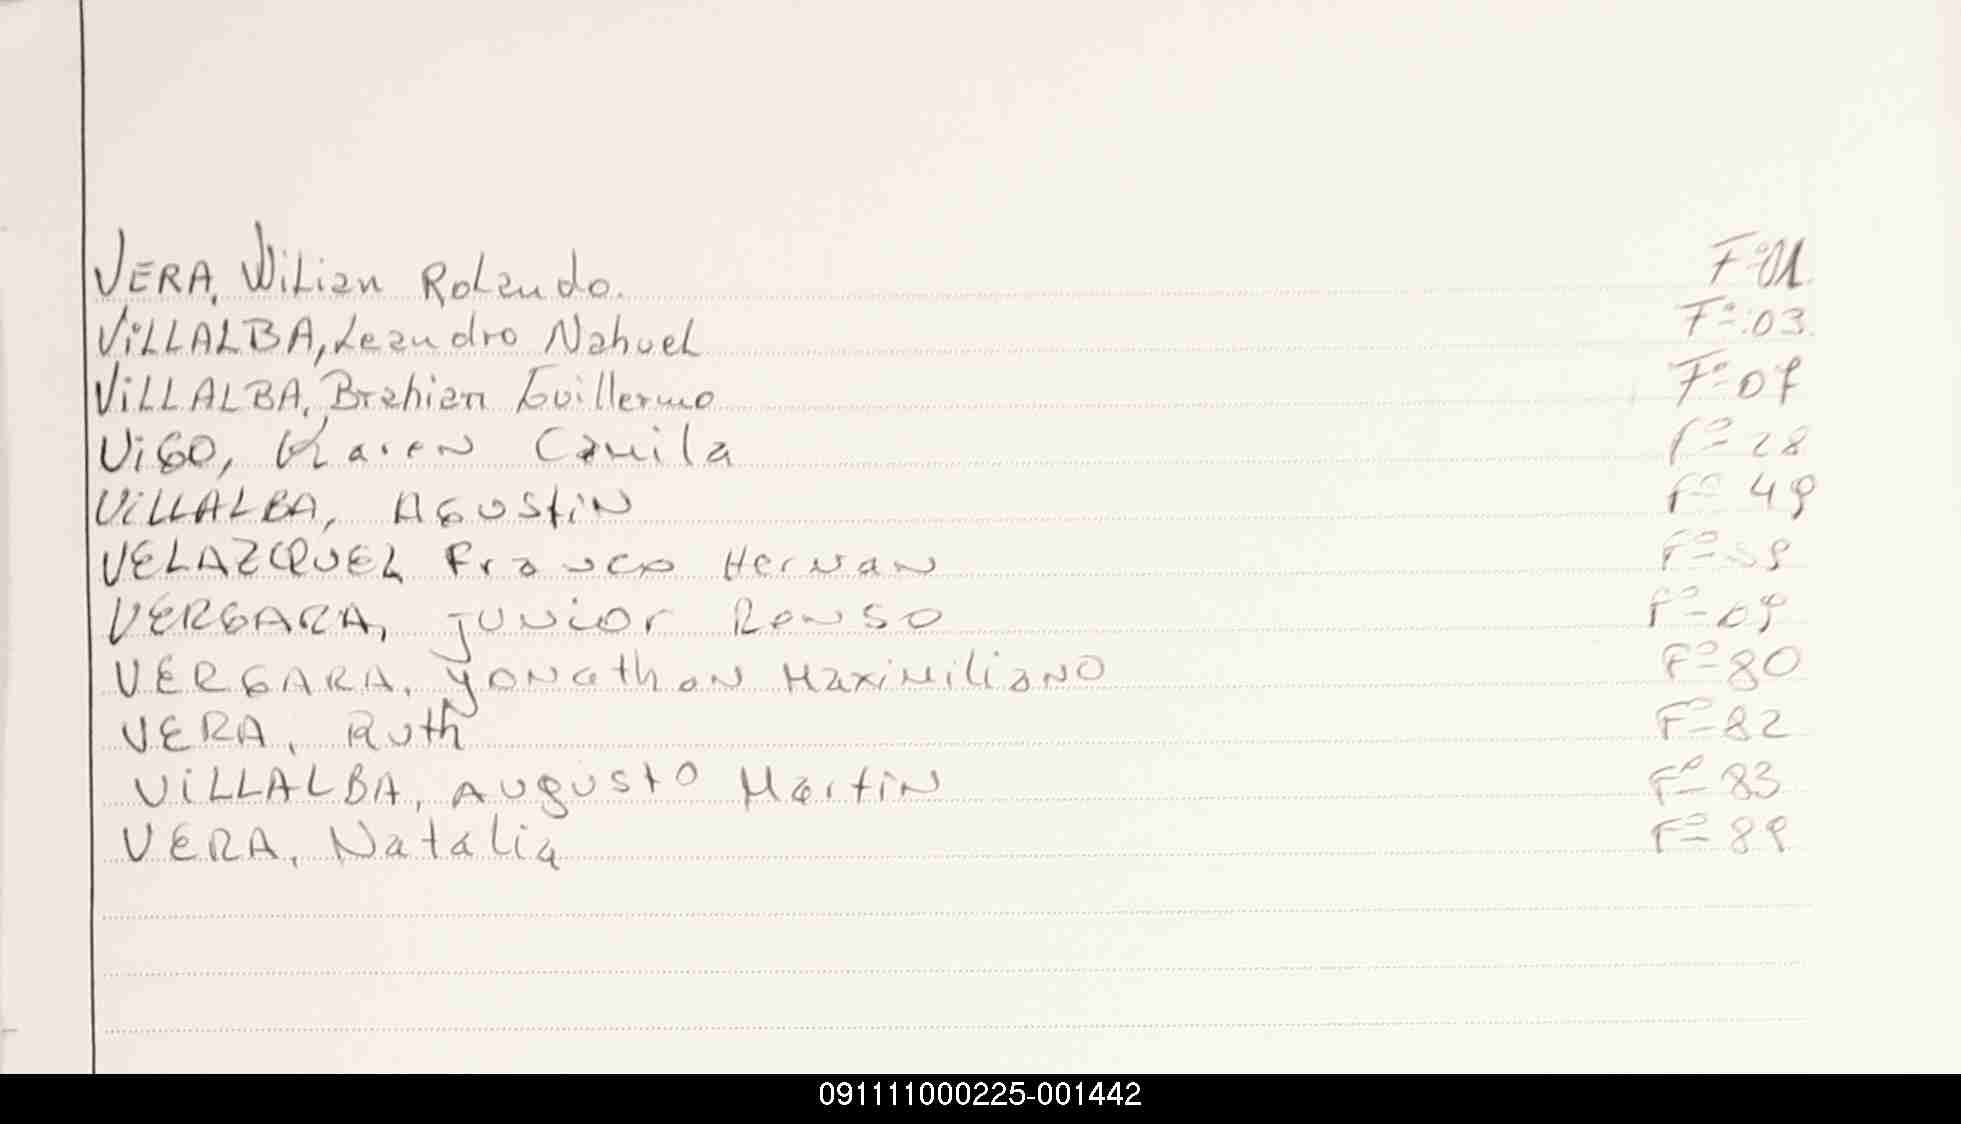 VERA, Wilian Rolando. Fº 01
VILLALBA, Leandro Nahuel Fº 03
VILLALBA, Brahian Guillermo Fº 07
VIGO, Karen Camila Fº 28
VILLALBA, Agustin Fº 49
VELAZQUEZ Franco Hernan Fº
VERGARA, Junior Renso Fº
VERGARA, Yonathan Maximiliano Fº 80
VERA, Ruth Fº 82
VILLALBA, Augusto Martin Fº 83
VERA, Natalia Fº 89
091111000225-001442